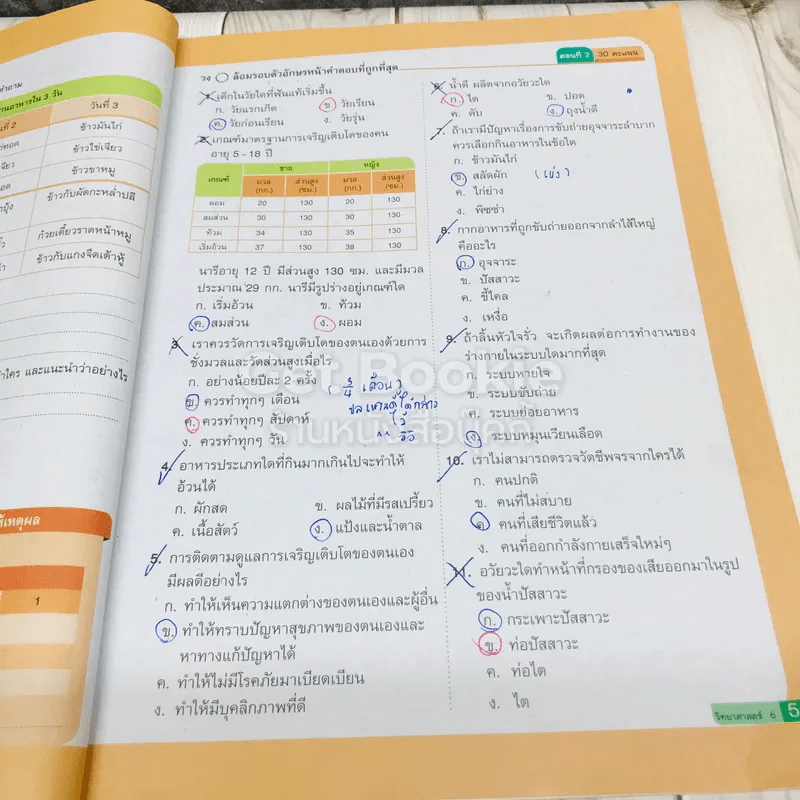 คำถาม
านอาหารใน 3 วัน
ที่ 2
วันที่ 3
ทอด
ข้าวมันไก่
จียว
ข้าวไข่เจียว
ข้าวขาหมู
ข้าวกับผัดกะหล่ำปลี
ก๋วยเตี๋ยวราดหน้าหมู
ข้าวกับแกงจืดเต้าหู้
าใคร และแนะนำว่าอย่างไร
ห้เหตุผล
1
ตอนที่ 2
30 คะแนน
วง ◯ ล้อมรอบตัวอักษรหน้าคำตอบที่ถูกที่สุด
1. เด็กในวัยใดที่ฟันแท้เริ่มขึ้น
ก. วัยแรกเกิด ข. วัยเรียน
ค. วัยก่อนเรียน ง. วัยรุ่น
2. เกณฑ์มาตรฐานการเจริญเติบโตของคน
อายุ 5 - 18 ปี
เกณฑ์ ชาย หญิง
มวล (กก.) ส่วนสูง (ซม.) มวล (กก.) ส่วนสูง (ซม.)
ผอม 20 130 20 130
สมส่วน 30 130 30 130
ท้วม 34 130 35 130
เริ่มอ้วน 37 130 38 130
นารีอายุ 12 ปี มีส่วนสูง 130 ซม. และมีมวล
ประมาณ 29 กก. นารีมีรูปร่างอยู่เกณฑ์ใด
ก. เริ่มอ้วน ข. ท้วม
ค. สมส่วน ง. ผอม
3. เราควรวัดการเจริญเติบโตของตนเองด้วยการ
ชั่งมวลและวัดส่วนสูงเมื่อไร
ก. อย่างน้อยปีละ 2 ครั้ง
ข. ควรทำทุกๆ เดือน
ค. ควรทำทุกๆ สัปดาห์
ง. ควรทำทุกๆ วัน
4. อาหารประเภทใดที่กินมากเกินไปจะทำให้
อ้วนได้
ก. ผักสด ข. ผลไม้ที่มีรสเปรี้ยว
ค. เนื้อสัตว์ ง. แป้งและน้ำตาล
5. การติดตามดูแลการเจริญเติบโตของตนเอง
มีผลดีอย่างไร
ก. ทำให้เห็นความแตกต่างของตนเองและผู้อื่น
ข. ทำให้ทราบปัญหาสุขภาพของตนเองและ
หาทางแก้ปัญหาได้
ค. ทำให้ไม่มีโรคภัยมาเบียดเบียน
ง. ทำให้มีบุคลิกภาพที่ดี
6. น้ำดี ผลิตจากอวัยวะใด
ก. ไต ข. ปอด
ค. ตับ ง. ถุงน้ำดี
7. ถ้าเรามีปัญหาเรื่องการขับถ่ายอุจจาระลำบาก
ควรเลือกกินอาหารในข้อใด
ก. ข้าวมันไก่
ข. สลัดผัก
ค. ไก่ย่าง
ง. พิซซ่า
8. กากอาหารที่ถูกขับถ่ายออกจากลำไส้ใหญ่
คืออะไร
ก. อุจจาระ
ข. ปัสสาวะ
ค. ขี้ไคล
ง. เหงื่อ
9. ถ้าลิ้นหัวใจรั่ว จะเกิดผลต่อการทำงานของ
ร่างกายในระบบใดมากที่สุด
ก. ระบบหายใจ
ข. ระบบขับถ่าย
ค. ระบบย่อยอาหาร
ง. ระบบหมุนเวียนเลือด
10. เราไม่สามารถตรวจวัดชีพจรจากใครได้
ก. คนปกติ
ข. คนที่ไม่สบาย
ค. คนที่เสียชีวิตแล้ว
ง. คนที่ออกกำลังกายเสร็จใหม่ๆ
11. อวัยวะใดทำหน้าที่กรองของเสียออกมาในรูป
ของน้ำปัสสาวะ
ก. กระเพาะปัสสาวะ
ข. ท่อปัสสาวะ
ค. ท่อไต
ง. ไต
วิทยาศาสตร์ 6
5
Get Bookie